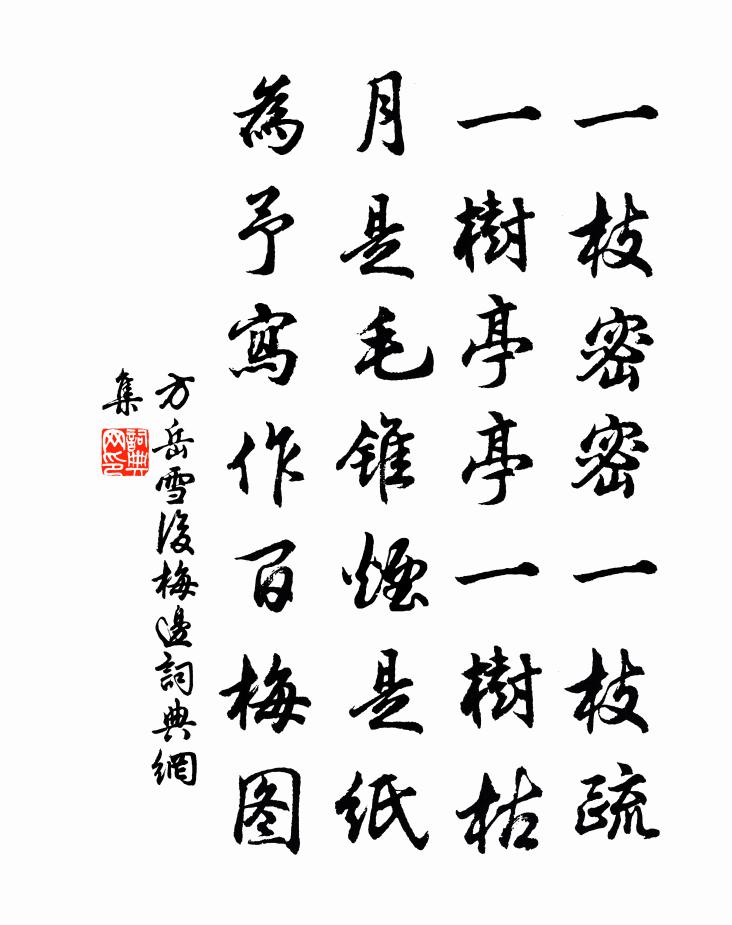 一枝密密一枝疏
一樹亭亭一樹枯
月是毛錐煙是紙
為予寫作百梅图
方岳雪後梅邊詞典網
集
詞典
网印